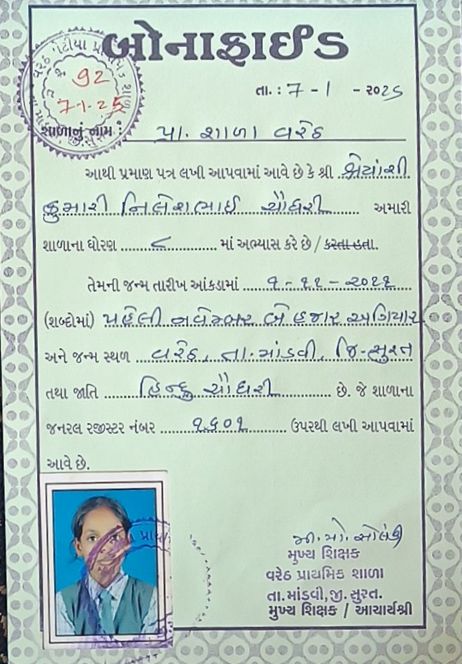 બોનાફાઈડ
92
7-1-25
તા. : 7 - 1 - ૨૦૨૫
શાળાનું નામ : પ્રા. શાળા વરેઠ
આથી પ્રમાણ પત્ર લખી આપવામાં આવે છે કે શ્રી શ્રેયાંશી
કુમારી નિલેશભાઈ ચૌધરી અમારી
શાળાના ધોરણ ૮ માં અભ્યાસ કરે છે / કરતા હતા.
તેમની જન્મ તારીખ આંકડામાં ૧-૧૧-૨૦૧૧
(શબ્દોમાં) પહેલી નવેમ્બર બે હજાર અગિયાર
અને જન્મ સ્થળ વરેઠ, તા. માંડવી, જિ. સુરત
તથા જાતિ હિન્દુ ચૌધરી છે. જે શાળાના
જનરલ રજીસ્ટર નંબર ૧૬૦૧ ઉપરથી લખી આપવામાં
આવે છે.
મુખ્ય શિક્ષક
વરેઠ પ્રાથમિક શાળા
તા. માંડવી, જી. સુરત.
મુખ્ય શિક્ષક / આચાર્યશ્રી